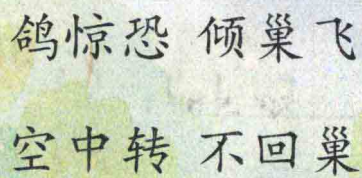 鸽惊恐 倾巢飞
空中转 不回巢